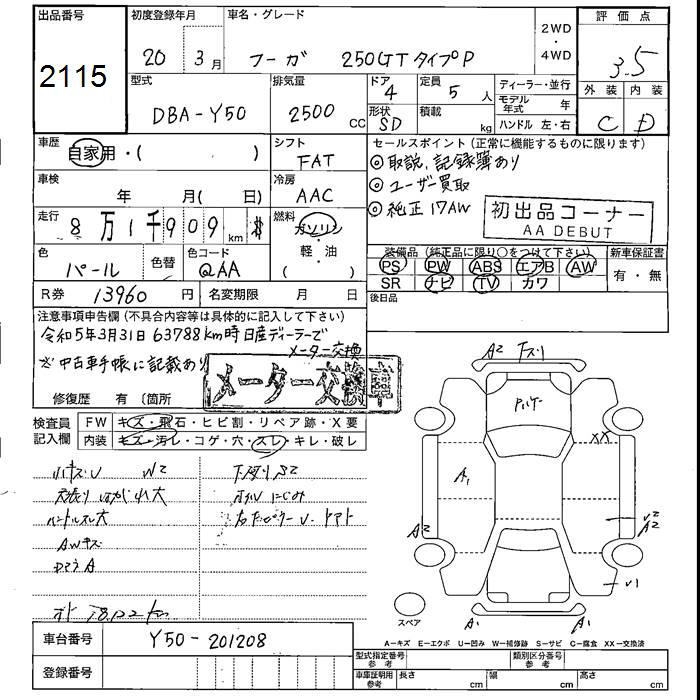 出品番号 初度登録年月 車名・グレード 評価点
2115 20年 3月 フーガ 250GTタイプP 2WD・4WD 3.5
型式 排気量 ドア 4 定員 5人 ディーラー・並行 外装 内装
DBA-Y50 2500cc 形状 SD 積載 kg モデル年式 年 C D
ハンドル 左・右
車歴 自家用・( ) シフト FAT セールスポイント(正常に機能するものに限ります)
◎取説、記録簿あり
車検 年 月(日) 冷房 AAC ◎ユーザー買取
走行 8万1千909km 燃料 ガソリン 軽・油 ◎純正17AW
初出品コーナー
AA DEBUT
色 パール 色替 色コード QAA 装備品(純正品に限り○をつけて下さい) 新車保証書
PS PW ABS エアB AW 有・無
SR ナビ TV カワ
R券 13960円 名変期限 月 日 後日品
注意事項申告欄(不具合内容等は具体的に記入して下さい)
令和5年3月31日63788km時日産ディーラーで
メーター交換
※中古車手帳に記載あり メーター交換車
修復歴 有(箇所
検査員記入欄 FW キズ・飛石・ヒビ割・リペア跡・X要
内装 キズ・汚レ・コゲ・穴・スレ・キレ・破レ
W2
ハンドルスレ大
AWキズ
A2 下スリ
XX
A1
A2
V2
A2
V1
A1 A1
スペア
A-キズ E-エクボ U-凹み W-補修跡 S-サビ C-腐食 XX-交換済
車台番号 Y50-201208
登録番号
型式指定番号 参考 類別区分番号 参考
車庫証明用 参考 長さ cm 幅 cm 高さ cm